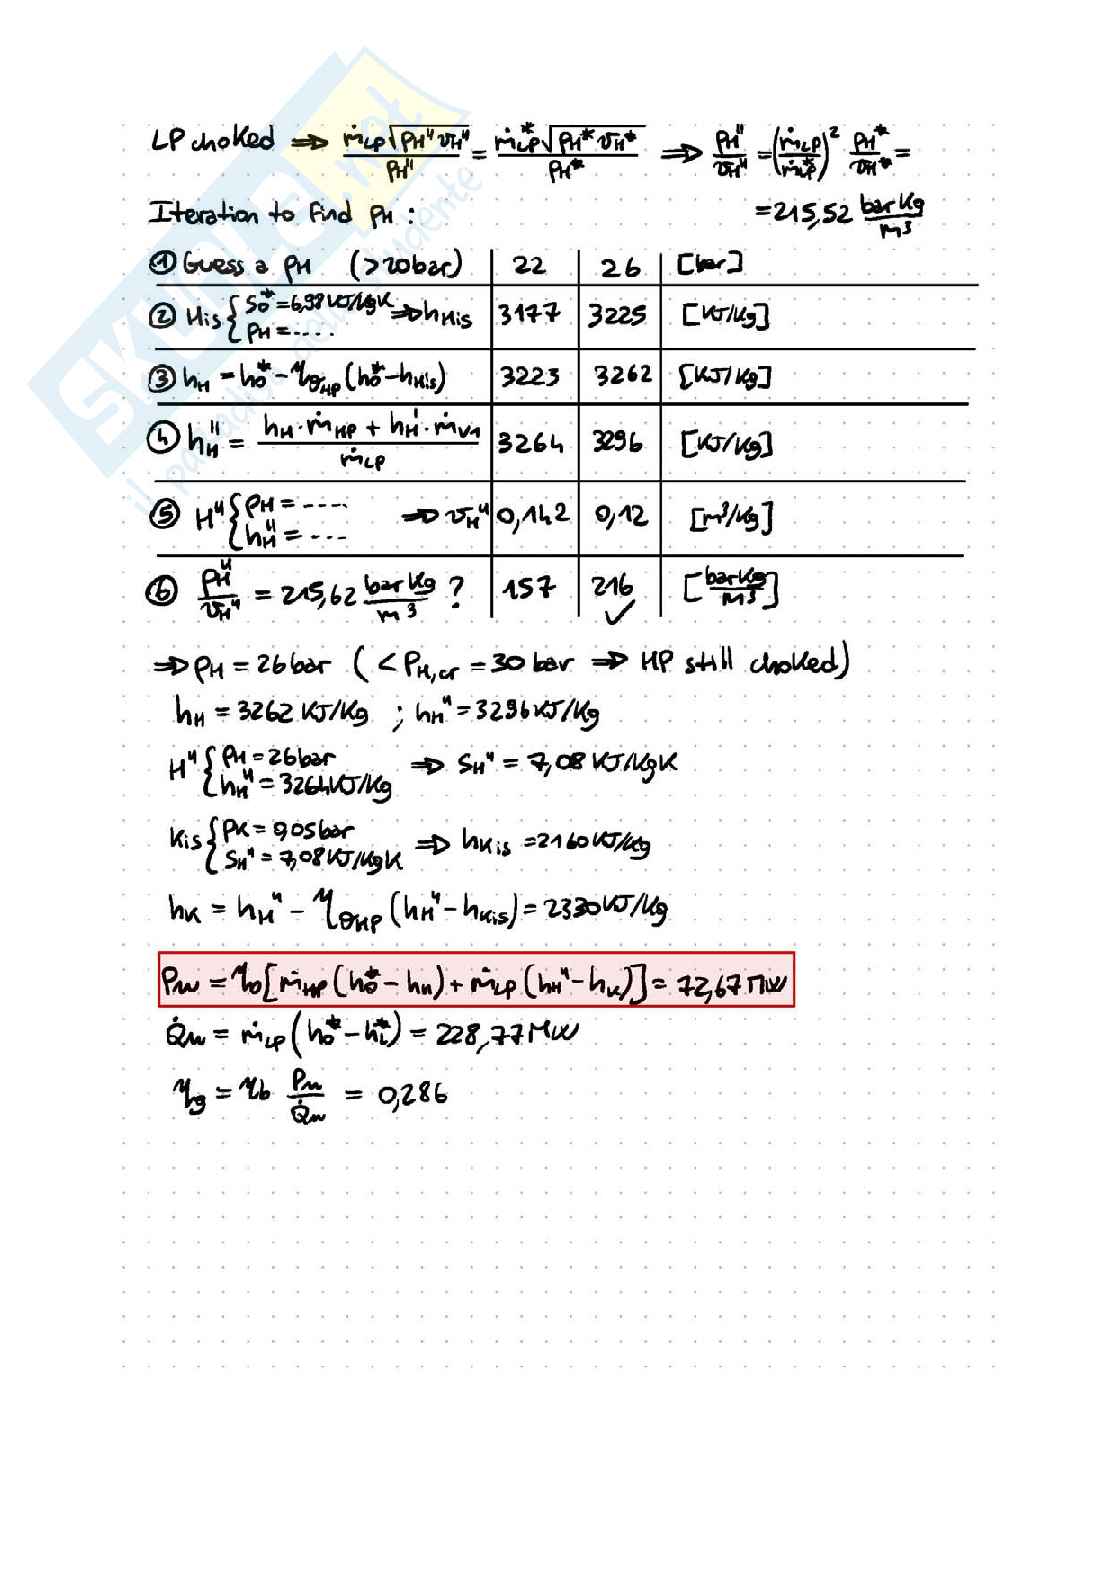 LP choked ⇒ ṁ_LP √(p_H'' v_H'') / p_H'' = ṁ*_LP √(p_H* v_H*) / p_H* ⇒ p_H''/v_H'' = (ṁ_LP/ṁ*_LP)² p_H*/v_H* =
Iteration to find p_H : = 215,52 bar kg/m³
① Guess a p_H (>20bar) | 22 | 26 | [bar]
② His { S_0* = 6,98 KJ/kgK p_H = .... ⇒ h_His | 3177 | 3225 | [KJ/kg]
③ h_H = h_0* - η_θHP (h_0* - h_His) | 3223 | 3262 | [KJ/kg]
④ h_H'' = (h_H · ṁ_HP + h_H' · ṁ_V1) / ṁ_LP | 3264 | 3296 | [KJ/kg]
⑤ H'' { p_H = .... h_H'' = ... ⇒ v_H'' | 0,142 | 0,12 | [m³/kg]
⑥ p_H''/v_H'' = 215,62 bar kg/m³ ? | 157 | 216 ✓ | [bar kg/m³]
⇒ p_H = 26 bar ( < P_H,cr = 30 bar ⇒ HP still choked)
h_H = 3262 KJ/kg ; h_H'' = 3296 KJ/kg
H'' { p_H = 26 bar h_H'' = 3264 KJ/kg ⇒ S_H'' = 7,08 KJ/kgK
Kis { p_K = 0,05 bar S_H'' = 7,08 KJ/kgK ⇒ h_Kis = 2160 KJ/kg
h_K = h_H'' - η_θHP (h_H'' - h_Kis) = 2330 KJ/kg
P_m = η_0 [ṁ_HP (h_0* - h_H) + ṁ_LP (h_H'' - h_K)] = 72,67 MW
Q̇_m = ṁ_LP (h_0* - h_L*) = 228,77 MW
η_g = η_b P_m/Q̇_m = 0,286